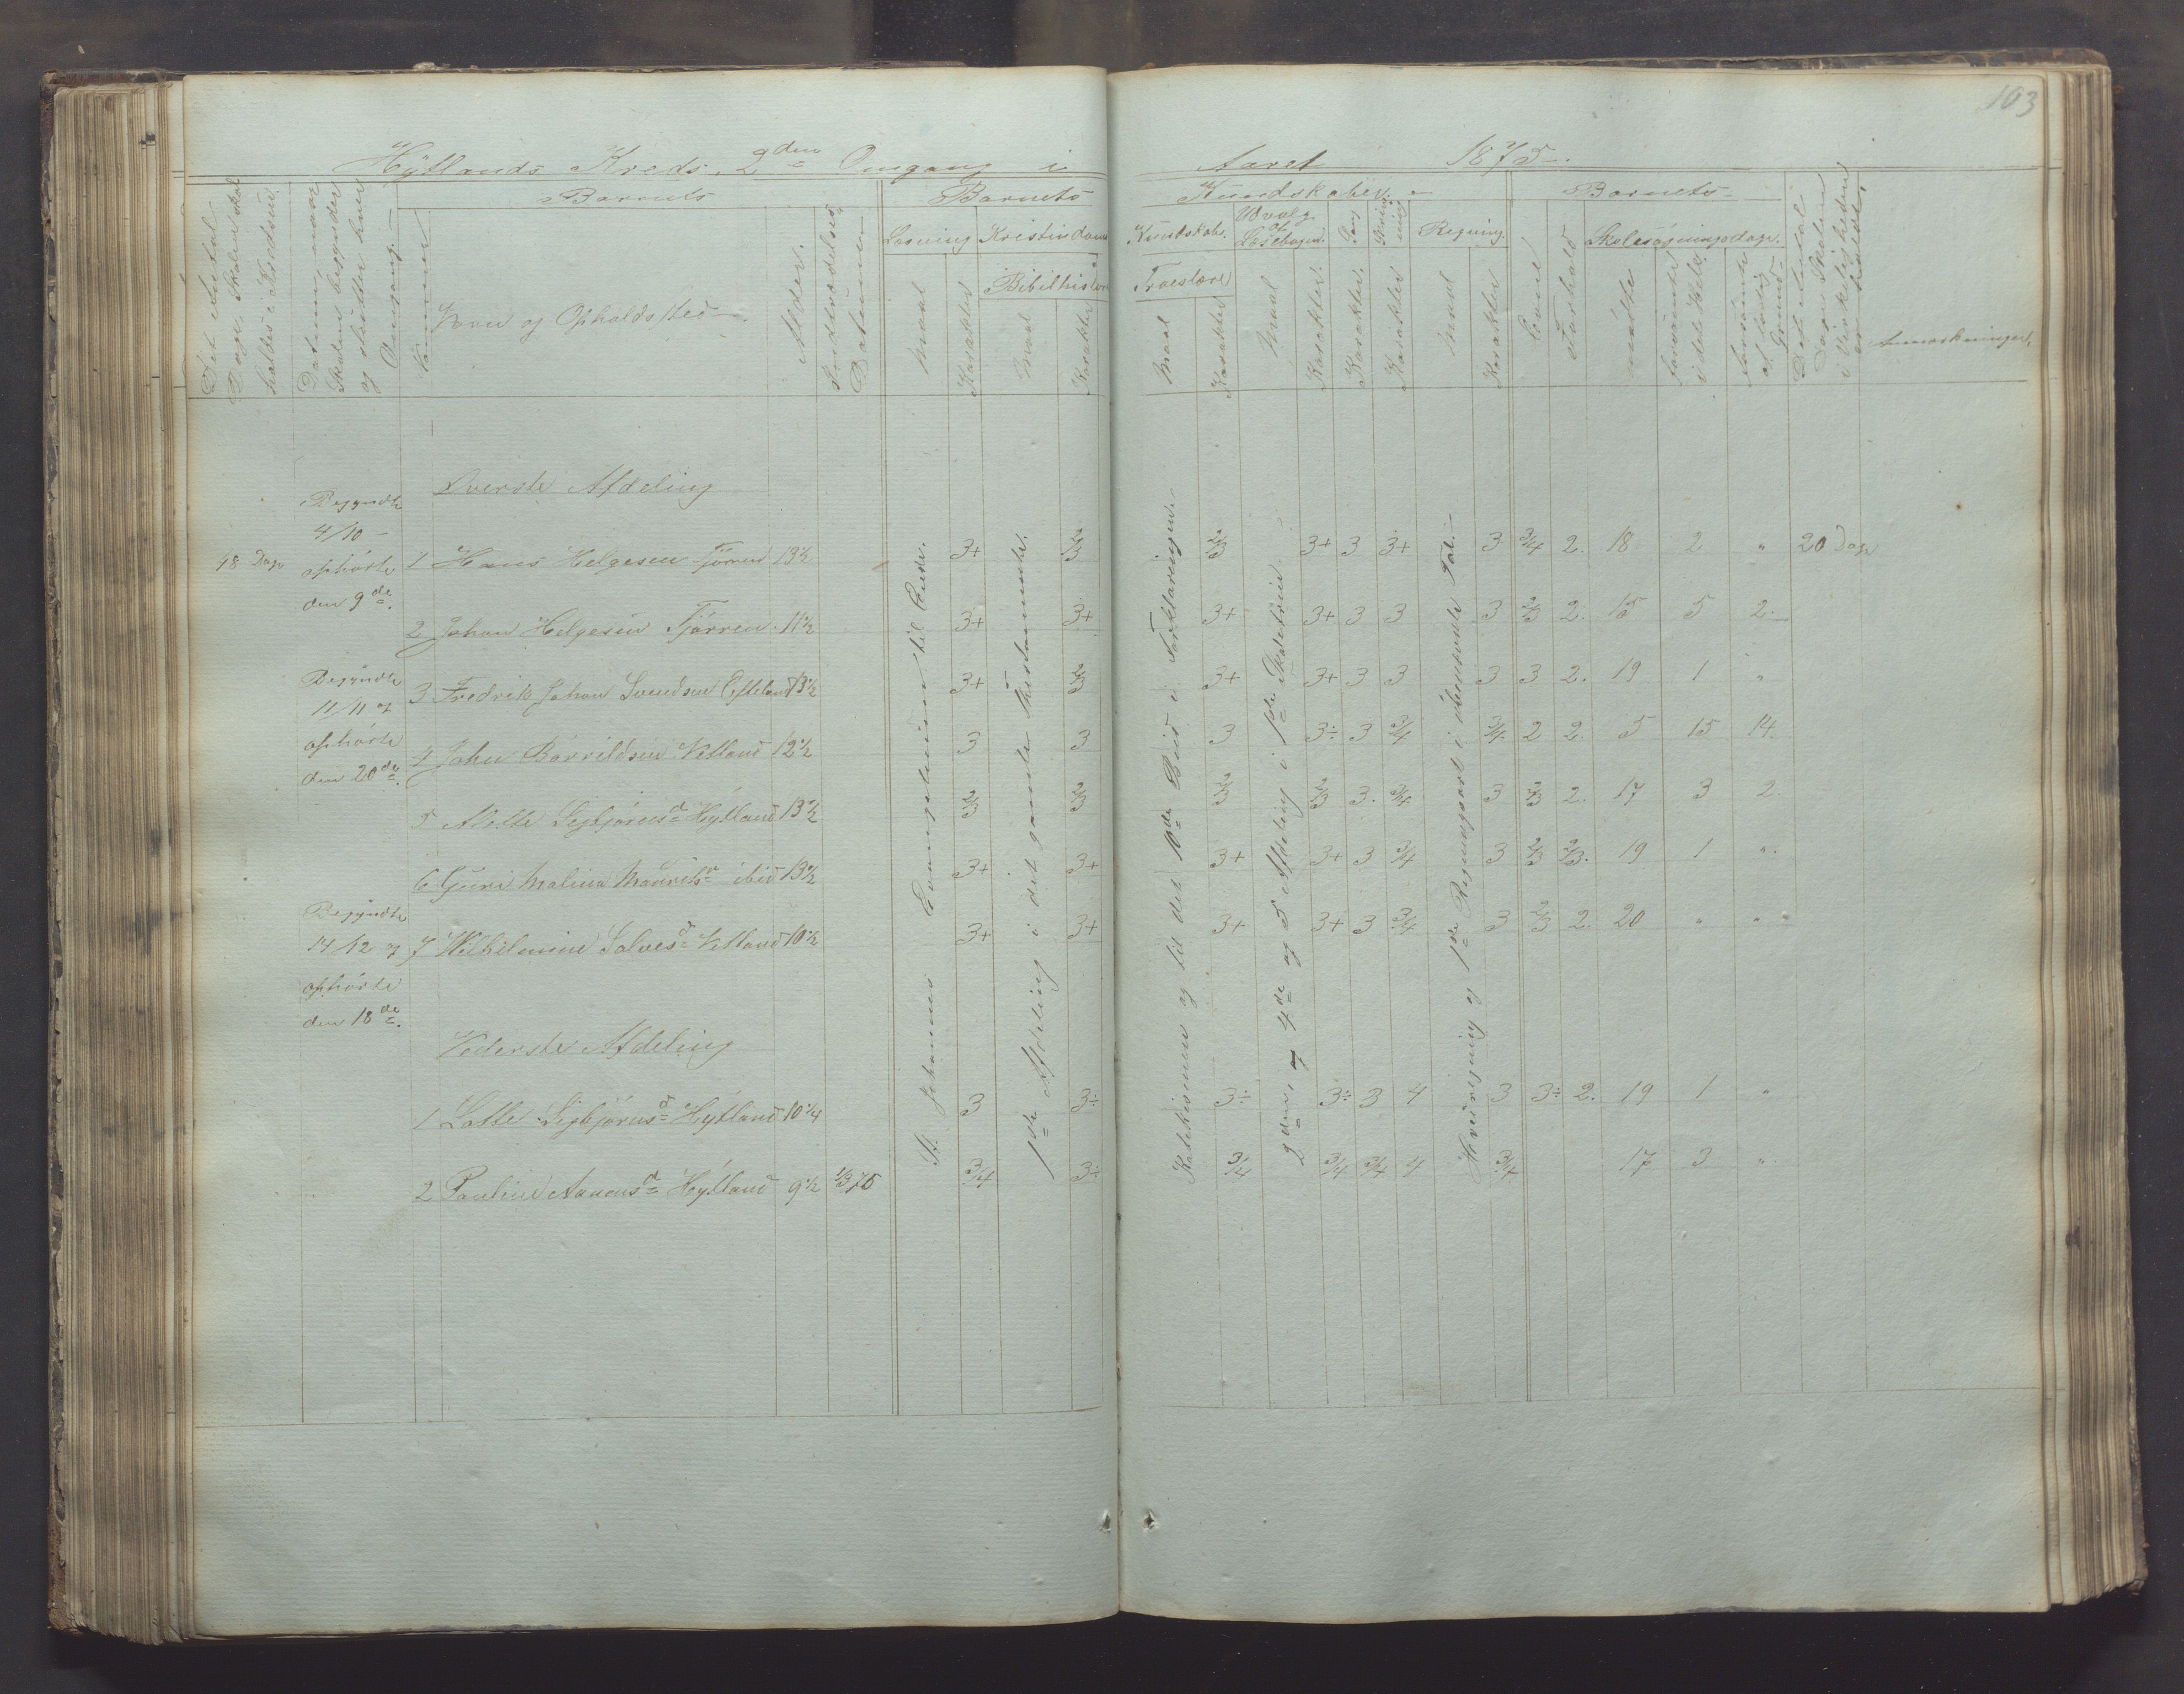 103
Hÿllands Kreds, 2den Omgang i Aaret 1875.
Det Antal Dage Skolen skal holdes i Kredsen.
Datum, naar Skolen begynder og slutter hver Omgang.
Nummer
Barnets
Navn og Opholdssted
Alder.
Indtrædelses Datum
Barnets
Læsning
Maal
Karakter
Kristendoms
Bibelhistorie
Maal
Karakter
Kundskaber.
Kundskabs.
Troeslære
Maal
Karakter
Udvalg af Læsebogen.
Maal
Karakter.
Sang
Karakter.
Skrivning
Karakter
Regning
Maal
Karakter
Barnets
Evne
Forhold
Skolesøgningsdage.
mødte
forsømte i det Hele
forsømte af lovlig Grund
Det Antal Dage Skolen i Virkeligheden er holdt.
Anmærkninger.
Øverste Afdeling
18 Dage
Begyndte
4/10 -
ophørte
den 9de.
Begyndte
11/11 og
ophørte
den 20de.
Begyndte
14/12 og
ophørte
den 18de.
1 Hans Helgesen Tjörren 13½ 3+ 2/3 2/3 3+ 3 3+ 3 3/4 2. 18 2 " 20 Dage
2 Johan Helgesen Tjörren 11½ 3+ 3+ 3+ 3+ 3 3 3 2/3 2. 15 5 2.
3 Fredrik Johan Svendsen Efteland 13½ 3+ 2/3 3+ 3+ 3 3 3 3 2. 19 1 "
4 John Bårrildsen Vetland 12½ 3 3 3 3÷ 3 3/4 3/4 2 2. 5 15 14.
5 Alette Sigbjörnsd Hÿlland 13½ 2/3 2/3 2/3 2/3 3. 3/4 3 2/3 2. 17 3 2.
6 Guri Malina Mauritsd ibid 13½ 3+ 3+ 3+ 3+ 3 3/4 3 2/3 2/3. 19 1 ".
7 Wilhelmine Salvesd Vetland 10½ 3+ 3+ 3+ 3+ 3 3/4 3 2/3 2. 20 " "
Nederste Afdeling
1 Lotte Sigbjörnsd Hÿlland 10¼ 3 3÷ 3÷ 3÷ 3 4 3 3÷ 2. 19 1 "
2 Pauline Aanensd Hÿlland 9½ 1/3 75 3/4 3÷ 3/4 3/4 3/4 4 3/4 17 3 "
St. Johannes Evangelium til Ende.
1ste Afdeling i det gamle Testamente.
Katekismen og til det 10de Bud i Forklaringen.
2den, og 4de og 5 Afdeling i 1ste Skoletrin.
Hovedregning og 1ste Regningsart i ubenævnte Tal.